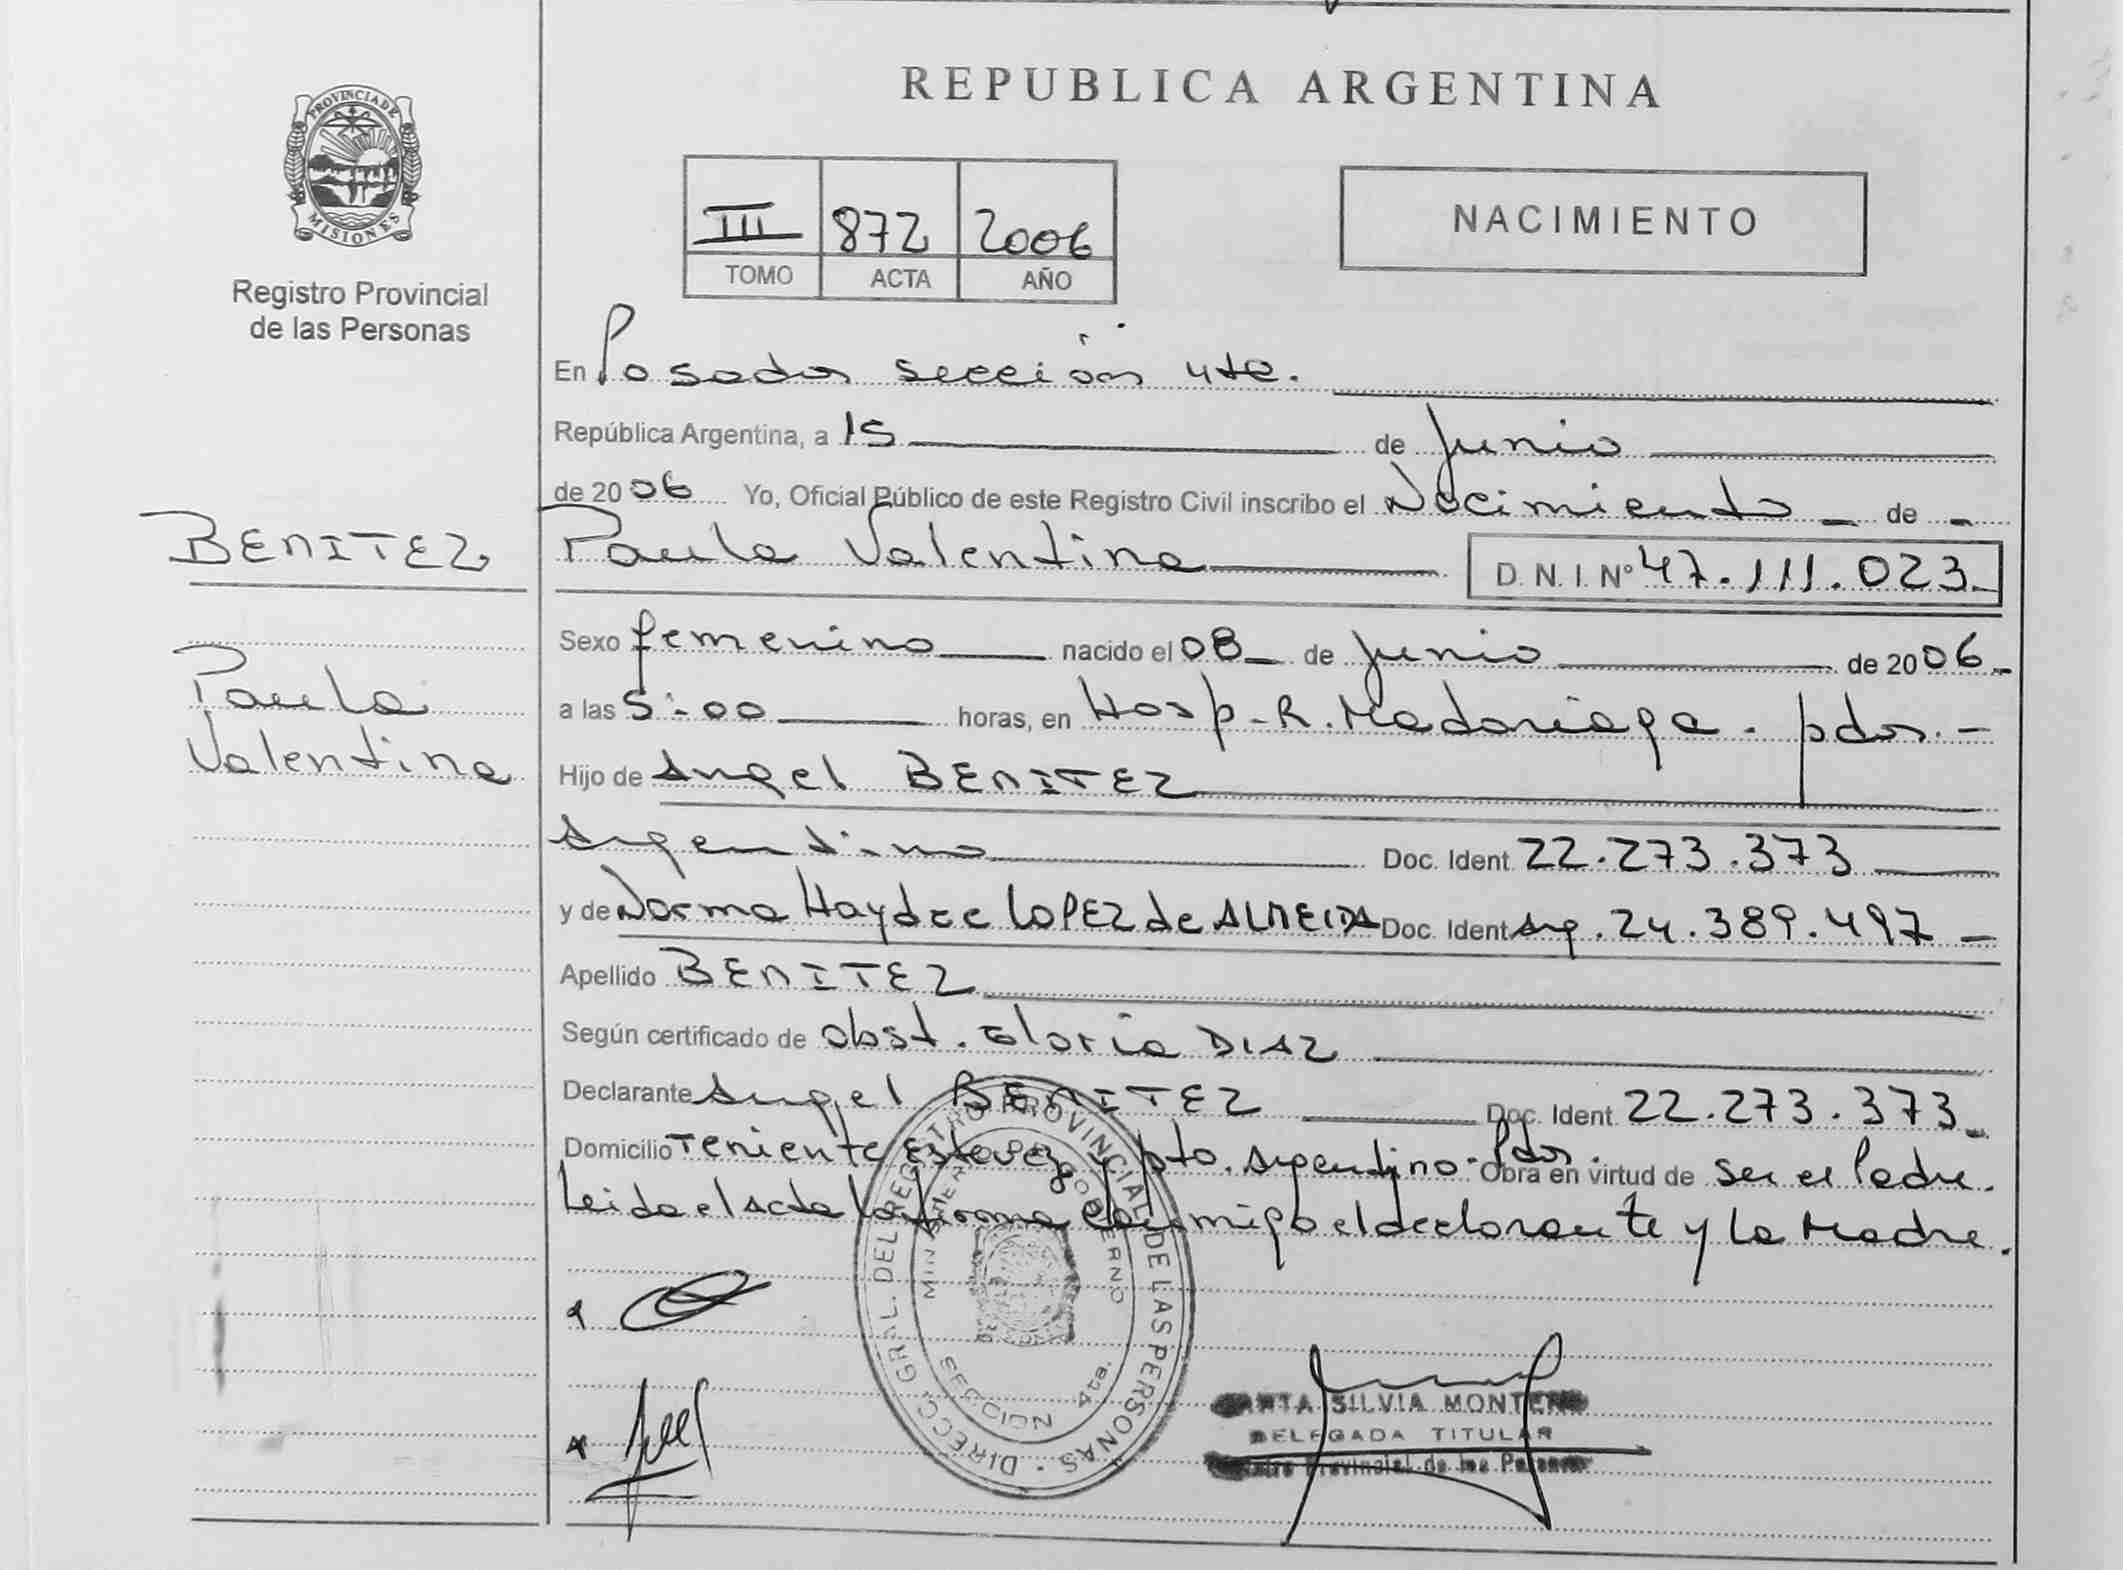 REPUBLICA ARGENTINA
PROVINCIA DE
MISIONES
Registro Provincial
de las Personas
III 872 2006
TOMO ACTA AÑO
NACIMIENTO
En Posadas sección 4ta.
República Argentina, a 15 de Junio
de 2006 Yo, Oficial Público de este Registro Civil inscribo el Nacimiento de
BENITEZ
Paula Valentina D.N.I. Nº 47.111.023
Paula
Valentina
Sexo femenino nacido el 08 de Junio de 2006
a las 5:00 horas, en Hosp. R. Madariaga. pdas.
Hijo de Angel BENITEZ
Argentino Doc. Ident. 22.273.373
y de Norma Haydee LOPEZ de ALMEIDA Doc. Ident Arg. 24.389.497
Apellido BENITEZ
Según certificado de obst. Gloria DIAZ
Declarante Angel BENITEZ Doc. Ident. 22.273.373
Domicilio Teniente Estevez y pto. Argentino. Pdas. Obra en virtud de ser el Padre.
Leida el Acta la firma Conmigo el declarante y la Madre.
DIRECC. GRAL. DEL REGISTRO PROVINCIAL DE LAS PERSONAS
MINISTERIO DE GOBIERNO
SECCION 4ta.
SILVIA MONTERO
DELEGADA TITULAR
Provincial de las Personas